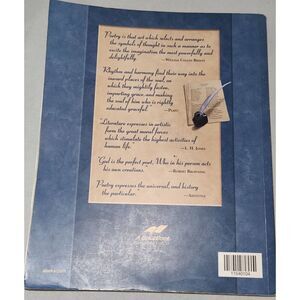 Poetry is that art which selects and arranges
the symbols of thought in such a manner as to
excite the imagination the most powerfully and
delightfully.
—William Cullen Bryant
Rhythm and harmony find their way into the
inward places of the soul, on
which they mightily fasten,
imparting grace, and making
the soul of him who is rightly
educated graceful.
—Plato
"Literature expresses in artistic
form the great moral forces
which stimulate the highest activities of
human life."
—A. M. Jones
"God is the perfect poet, Who in his person acts
his own creations.
—Robert Browning
Poetry expresses the universal, and history
the particular.
—Aristotle
11540104